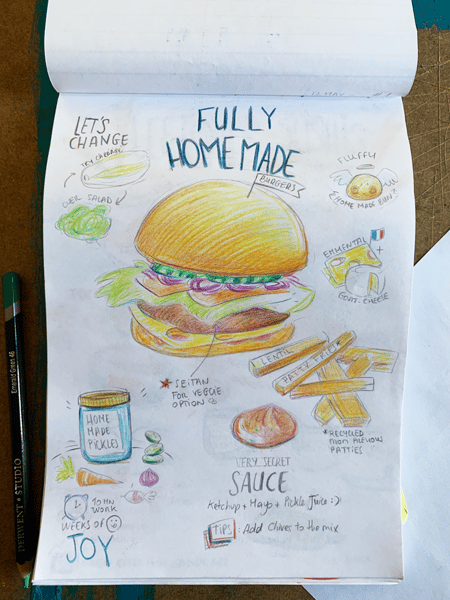 FULLY
HOMEMADE
BURGERS
LET'S
CHANGE
OVER SALAD
FLUFFY
HOME MADE
EMMENTAL
+
GOAT CHEESE
LENTIL
PATTY FRIES*
*RECYCLED
FROM
PATTIES
*SEITAN
FOR VEGGIE
OPTION
HOME
MADE
PICKLES
10MN
WORK
WEEKS OF
JOY
VERY SECRET
SAUCE
Ketchup + Mayo + Pickle Juice :)
TIPS: Add Chives to the mix
DERWENT STUDIO
Emerald Green 46